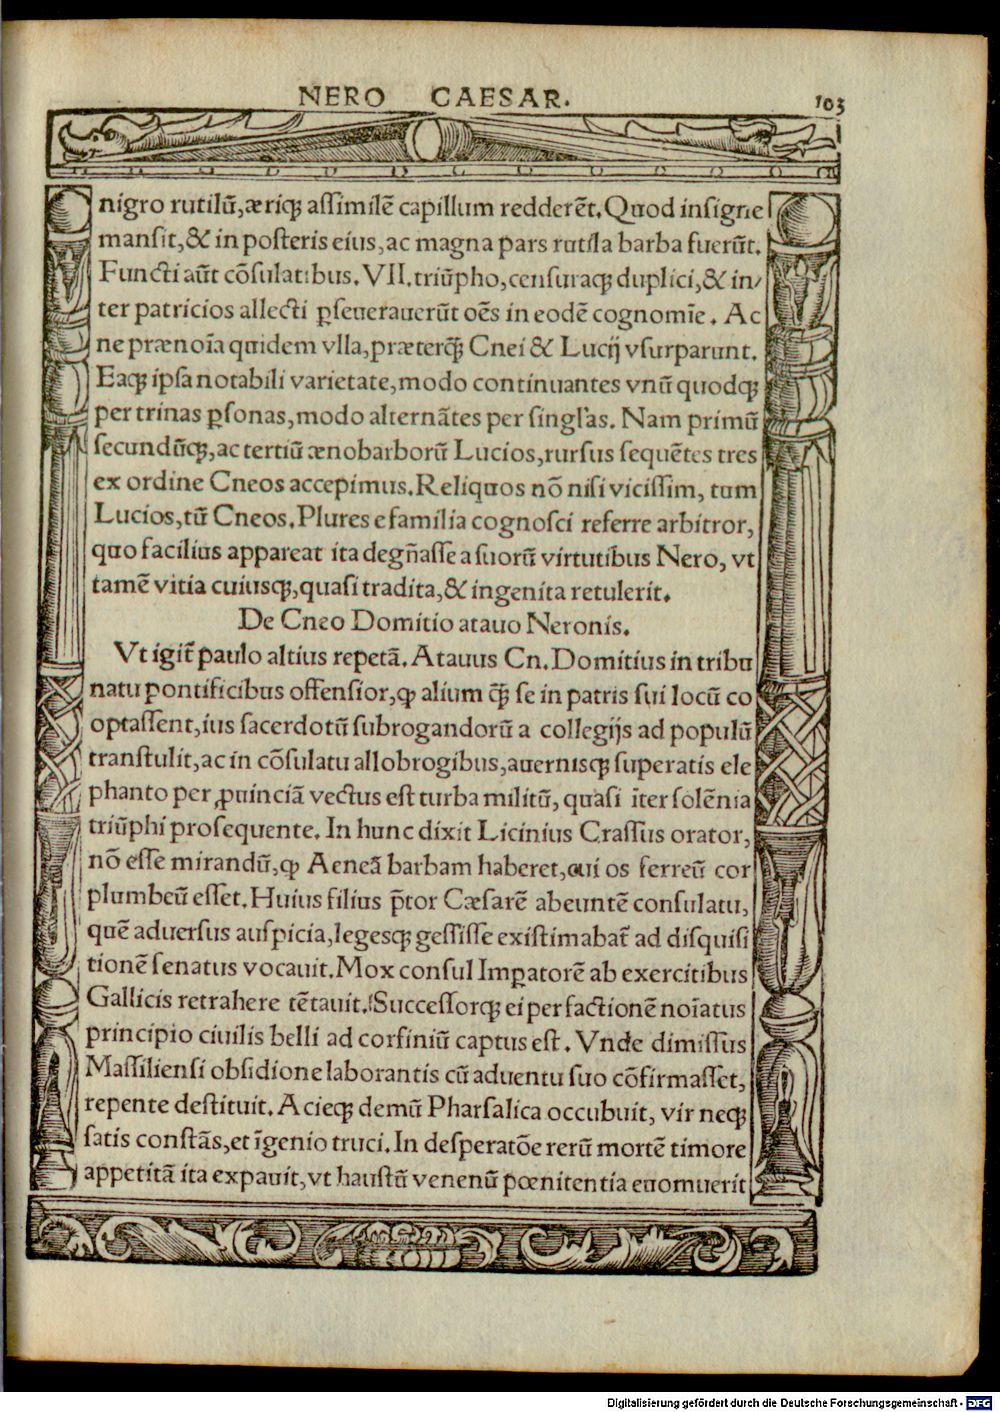 NERO CAESAR. 103
nigro rutilū, æriq; assimilē capillum redderēt. Quod insigne
mansit, & in posteris eius, ac magna pars rutila barba fuerūt.
Functi aūt cōsulatibus. VII. triūpho, censuraq; duplici, & in/
ter patricios allecti ꝑseuerauerūt oēs in eodē cognomīe. Ac
ne prænoīa quidem vlla, præterq̃; Cnei & Lucij vsurparunt.
Eaq; ipsa notabili varietate, modo continuantes vnū quodq;
per trinas ꝑsonas, modo alternātes per singl'as. Nam primū
secundūq;, ac tertiū ænobarborū Lucios, rursus sequētes tres
ex ordine Cneos accepimus. Reliquos nō nisi vicissim, tum
Lucios, tū Cneos. Plures e familia cognosci referre arbitror,
quo facilius appareat ita degñasse a suorū virtutibus Nero, vt
tamē vitia cuiusq;, quasi tradita, & ingenita retulerit.
De Cneo Domitio atauo Neronis.
Vt igit̃ paulo altius repetā. Atauus Cn. Domitius in tribu
natu pontificibus offensior, ꝙ alium q̃; se in patris sui locū co
optassent, ius sacerdotū subrogandorū a collegijs ad populū
transtulit, ac in cōsulatu allobrogibus, auernisq; superatis ele
phanto per ꝓuinciā vectus est turba militū, quasi īter solēnia
triūphi prosequente. In hunc dixit Licinius Crassus orator,
nō esse mirandū, ꝙ Aeneā barbam haberet, cui os ferreū cor
plumbeū esset. Huius filius p̄tor Cæsarē abeuntē consulatu,
quē aduersus auspicia, legesq; gessisse existimabat̃ ad disquisi
tionē senatus vocauit. Mox consul Imꝑatorē ab exercitibus
Gallicis retrahere tētauit. Successorq; ei per factionē noīatus
principio ciuilis belli ad corfiniū captus est. Vnde dimissus
Massiliensi obsidione laborantis cū aduentu suo cōfirmasset,
repente destituit. Acieq; demū Pharsalica occubuit, vir neq;
satis constās, et īgenio truci. In desperatōe rerū mortē timore
appetitā ita expauit, vt haustū venenū pœnitentia euomuerit
Digitalisierung gefördert durch die Deutsche Forschungsgemeinschaft - DFG